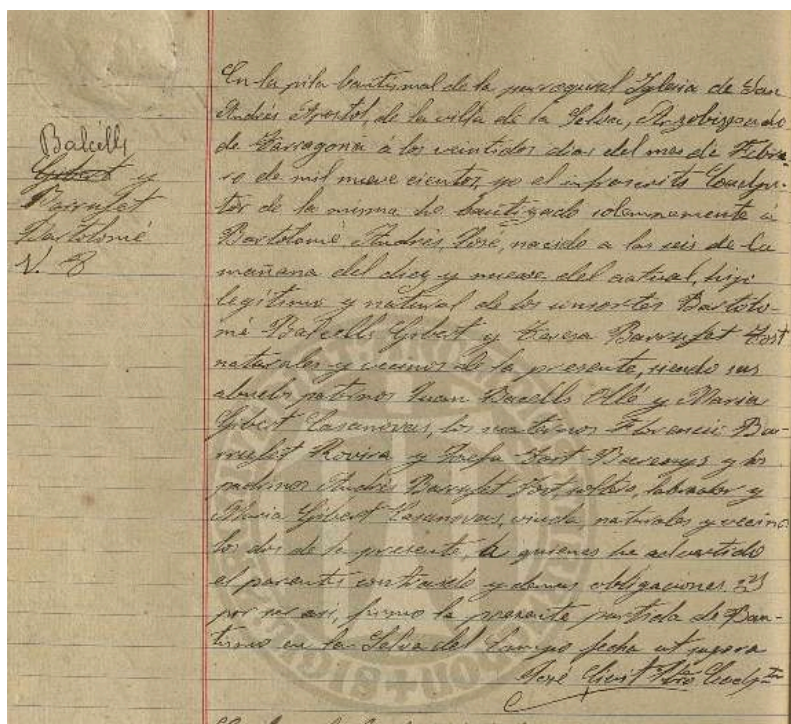 Balcélls
Gibert y
Barrufet
Bartolomé
N. 8
En la pila bautismal de la parroquial Iglesia de San
Andrés Apostol, de la villa de la Selva, Arzobispado
de Tarragona á los veintidos dias del mes de Febre-
ro de mil nueve cientos, yo el infrascrito Coadju-
tor de la misma he bautizado solemnemente á
Bartolomé, Andrés, José, nacido a las seis de la
mañana del diez y nueve del actual, hijo
legítimo y natural de los consortes Bartolo-
mé Balcells Gibert y Teresa Barrufet Fort
naturales y vecinos de la presente, siendo sus
abuelos paternos Juan Bacells Ollé y Maria
Gibert Casanovas, los maternos Florencio Bar-
rufet Rovira y Josefa Fort Barenys y los
padrinos Andrés Barrufet Fort soltero, labrador y
Maria Gibert Casanovas, viuda, naturales y vecinos
los dos de la presente, á quienes he advertido
el parentesco contraido y demas obligaciones. Y
por ser asi, firmo la presente partida de Bau-
tismo en la Selva del Campo fecha ut supra
José Pbro. Coadjtor